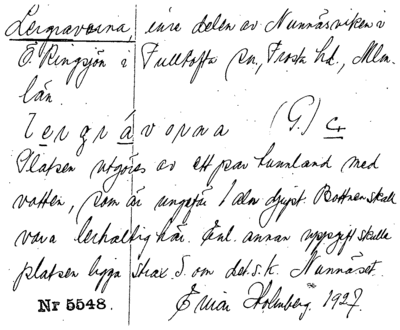 Lergravarna, inre delen av Nunnäsviken i
Ö Ringsjön i Fulltofta sn, Frosta hd., Mlm.
län.
lergrávorna (G.) c,
Platsen utgöres av ett par tunnland med
vatten, som är ungefär 1 aln djupt. Bottnen skall
vara lerhaltig här. Enl. annan uppgift skulle
platsen ligga strax S. om det s.k. Nunnäset.
Nr 5548. Holmberg. 1927.